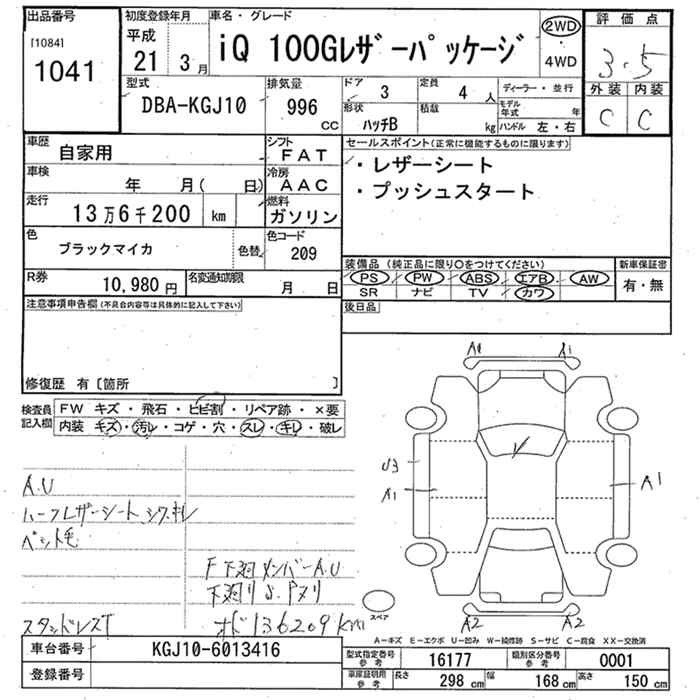 出品番号 初度登録年月 車名・グレード 評価点
[1084] 平成 2WD
1041 21 3月 iQ 100Gレザーパッケージ 4WD 3.5
型式 排気量 ドア 3 定員 4人 ディーラー・並行 外装 内装
DBA-KGJ10 996 cc 形状 ハッチB 積載 kg モデル年式 年 C C
ハンドル 左・右
車歴 自家用 シフト FAT セールスポイント(正常に機能するものに限ります)
車検 年 月( 日) 冷房 AAC ・レザーシート
走行 13万6千200 km 燃料 ガソリン ・プッシュスタート
色 ブラックマイカ 色替 色コード 209
装備品(純正品に限り○をつけてください) 新車保証書
R券 10,980円 名変通知期限 月 日 PS PW ABS エアB AW 有・無
SR ナビ TV カワ
注意事項申告欄(不具合内容等は具体的に記入して下さい) 後日品
修復歴 有〔箇所 〕
A1 A1
検査員記入欄 FW キズ・飛石・ヒビ割・リペア跡・×要
内装 キズ・汚レ・コゲ・穴・スレ・キレ・破レ
U3
A.U A1 A1
ハーフレザーシート、シワ、キレ
ペット毛
F下廻メンバーA.U
下廻りS.Pヌリ
スペア
スタッドレスT オド136209km A2 A2
A―キズ E―エクボ U―凹み W―補修跡 S―サビ C―腐食 XX―交換済
車台番号 KGJ10-6013416 型式指定番号参考 16177 類別区分番号参考 0001
登録番号 車庫証明用参考 長さ 298 cm 幅 168 cm 高さ 150 cm